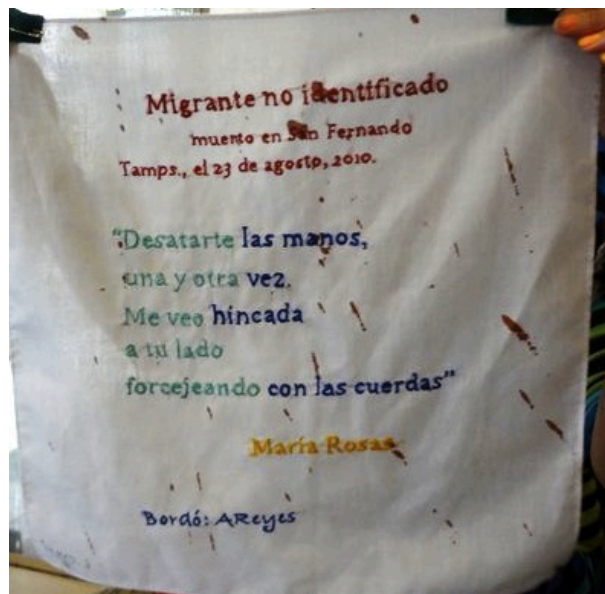 Migrante no identificado
muerto en San Fernando
Tamps., el 23 de agosto, 2010.
"Desatarte las manos,
una y otra vez.
Me veo hincada
a tu lado
forcejeando con las cuerdas"
María Rosas
Bordó: AReyes